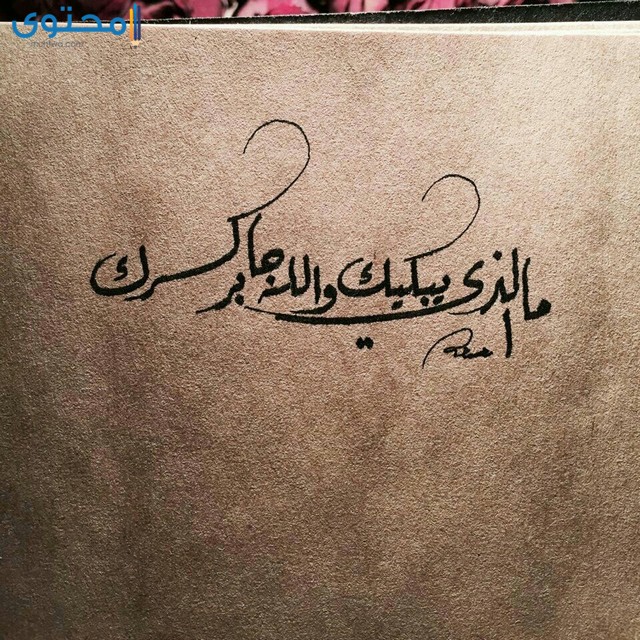 محتوى
mohtwa.com
ما الذي يبكيك والله جابر كسرك